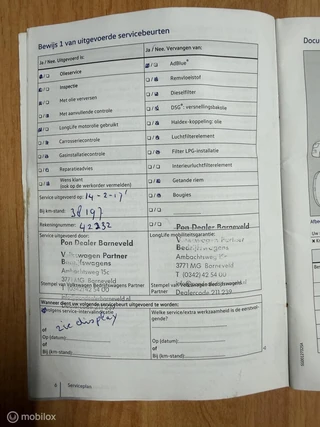 Bewijs 1 van uitgevoerde servicebeurten
Ja / Nee. Uitgevoerd is:
Ja / Nee. Vervangen van:
Olieservice
AdBlue®
Inspectie
Remvloeistof
Met olie verversen
Dieselfilter
Met aanvullende controle
DSG®- versnellingsbakolie
LongLife motorolie gebruikt
Haldex-koppeling: olie
Carrosseriecontrole
Luchtfilterelement
Gasinstallatiecontrole
Filter LPG-installatie
Reparatieadvies
Interieurluchtfilterelement
Wens klant
(ook op de werkorder vermelden)
Getande riem
Service uitgevoerd op: 14-2-17
Bougies
Bij km-stand: 38197
Rekeningnummer: 42232
Service uitgevoerd door:
LongLife mobiliteitsgarantie:
Pon Dealer Barneveld
Volkswagen Partner
Bedrijfswagens
Ambachtsweg 15c
3771 MG Barneveld
T (0342) 42 54 00
Stempel van Volkswagen Bedrijfswagens Partner
Pon Dealer Barneveld
Volkswagen Partner
Bedrijfswagens
Ambachtsweg 15c
3771 MG Barneveld
T (0342) 42 54 00
Stempel van Volkswagen Bedrijfswagens Partner
Dealercode 211 239
Wanneer dient uw volgende servicebeurt uitgevoerd te worden:
Volgens service-intervalindicatie
Welke service/extra werkzaamheid is de eerstvolgende?
of zie display
Op (datum):
of
Bij (km-stand):
Op (datum):
of
Bij (km-stand):
6 Serviceplan
Docu